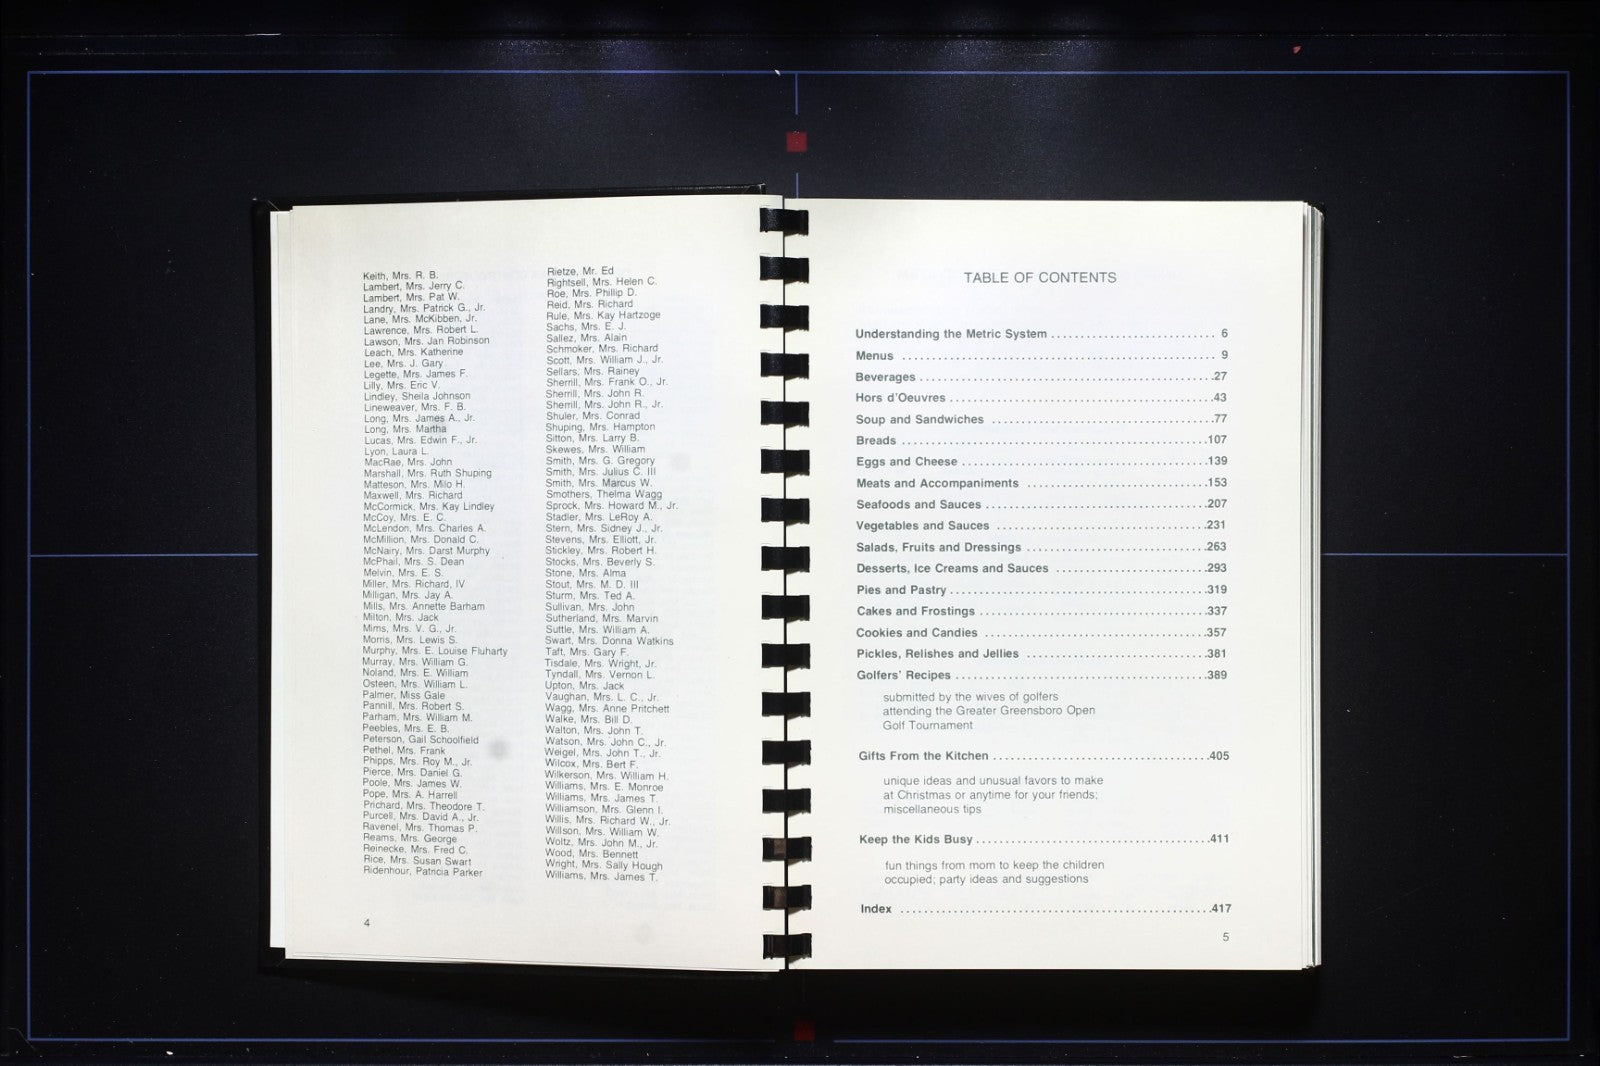 Keith, Mrs. R. B.
Lambert, Mrs. Jerry C.
Lambert, Mrs. Pat W.
Landry, Mrs. Patrick G., Jr.
Lane, Mrs. McKibben, Jr.
Lawrence, Mrs. Robert L.
Lawson, Mrs. Jan Robinson
Leach, Mrs. Katherine
Lee, Mrs. J. Gary
Legette, Mrs. James F.
Lilly, Mrs. Eric V.
Lindley, Sheila Johnson
Lineweaver, Mrs. F. B.
Long, Mrs. James A., Jr.
Long, Mrs. Martha
Lucas, Mrs. Edwin F., Jr.
Lyon, Laura L.
MacRae, Mrs. John
Marshall, Mrs. Ruth Shuping
Matteson, Mrs. Milo H.
Maxwell, Mrs. Richard
McCormick, Mrs. Kay Lindley
McCoy, Mrs. E. C.
McLendon, Mrs. Charles A.
McMillion, Mrs. Donald C.
McNairy, Mrs. Darst Murphy
McPhail, Mrs. S. Dean
Melvin, Mrs. E. S.
Miller, Mrs. Richard, IV
Milligan, Mrs. Jay A.
Mills, Mrs. Annette Barham
Milton, Mrs. Jack
Mims, Mrs. V. G., Jr.
Morris, Mrs. Lewis S.
Murphy, Mrs. E. Louise Fluharty
Murray, Mrs. William G.
Noland, Mrs. E. William
Osteen, Mrs. William L.
Palmer, Miss Gale
Pannill, Mrs. Robert S.
Parham, Mrs. William M.
Peebles, Mrs. E. B.
Peterson, Gail Schoolfield
Pethel, Mrs. Frank
Phipps, Mrs. Roy M., Jr.
Pierce, Mrs. Daniel G.
Poole, Mrs. James W.
Pope, Mrs. A. Harrell
Prichard, Mrs. Theodore T.
Purcell, Mrs. David A., Jr.
Ravenel, Mrs. Thomas P.
Reams, Mrs. George
Reinecke, Mrs. Fred C.
Rice, Mrs. Susan Swart
Ridenhour, Patricia Parker
Rietze, Mr. Ed
Rightsell, Mrs. Helen C.
Roe, Mrs. Phillip D.
Reid, Mrs. Richard
Rule, Mrs. Kay Hartzoge
Sachs, Mrs. E. J.
Sallez, Mrs. Alain
Schmoker, Mrs. Richard
Scott, Mrs. William J., Jr.
Sellars, Mrs. Rainey
Sherrill, Mrs. Frank O., Jr.
Sherrill, Mrs. John R.
Sherrill, Mrs. John R., Jr.
Shuler, Mrs. Conrad
Shuping, Mrs. Hampton
Sitton, Mrs. Larry B.
Skewes, Mrs. William
Smith, Mrs. G. Gregory
Smith, Mrs. Julius C. III
Smith, Mrs. Marcus W.
Smothers, Thelma Wagg
Sprock, Mrs. Howard M., Jr.
Stadler, Mrs. LeRoy A.
Stern, Mrs. Sidney J., Jr.
Stevens, Mrs. Elliott, Jr.
Stickley, Mrs. Robert H.
Stocks, Mrs. Beverly S.
Stone, Mrs. Alma
Stout, Mrs. M. D. III
Sturm, Mrs. Ted A.
Sullivan, Mrs. John
Sutherland, Mrs. Marvin
Suttle, Mrs. William A.
Swart, Mrs. Donna Watkins
Taft, Mrs. Gary F.
Tisdale, Mrs. Wright, Jr.
Tyndall, Mrs. Vernon L.
Upton, Mrs. Jack
Vaughan, Mrs. L. C., Jr.
Wagg, Mrs. Anne Pritchett
Walke, Mrs. Bill D.
Walton, Mrs. John T.
Watson, Mrs. John C., Jr.
Weigel, Mrs. John T., Jr.
Wilcox, Mrs. Bert F.
Wilkerson, Mrs. William H.
Williams, Mrs. E. Monroe
Williams, Mrs. James T.
Williamson, Mrs. Glenn I.
Willis, Mrs. Richard W., Jr.
Willson, Mrs. William W.
Woltz, Mrs. John M., Jr.
Wood, Mrs. Bennett
Wright, Mrs. Sally Hough
Williams, Mrs. James T.
4
TABLE OF CONTENTS
Understanding the Metric System ............................ 6
Menus ...................................................... 9
Beverages ..................................................27
Hors d'Oeuvres .............................................43
Soup and Sandwiches ......................................77
Breads ....................................................107
Eggs and Cheese ..........................................139
Meats and Accompaniments ...............................153
Seafoods and Sauces ......................................207
Vegetables and Sauces ....................................231
Salads, Fruits and Dressings ...............................263
Desserts, Ice Creams and Sauces ..........................293
Pies and Pastry ............................................319
Cakes and Frostings .......................................337
Cookies and Candies ......................................357
Pickles, Relishes and Jellies ................................381
Golfers' Recipes ...........................................389
submitted by the wives of golfers
attending the Greater Greensboro Open
Golf Tournament
Gifts From the Kitchen .....................................405
unique ideas and unusual favors to make
at Christmas or anytime for your friends;
miscellaneous tips
Keep the Kids Busy ........................................411
fun things from mom to keep the children
occupied; party ideas and suggestions
Index .....................................................417
5